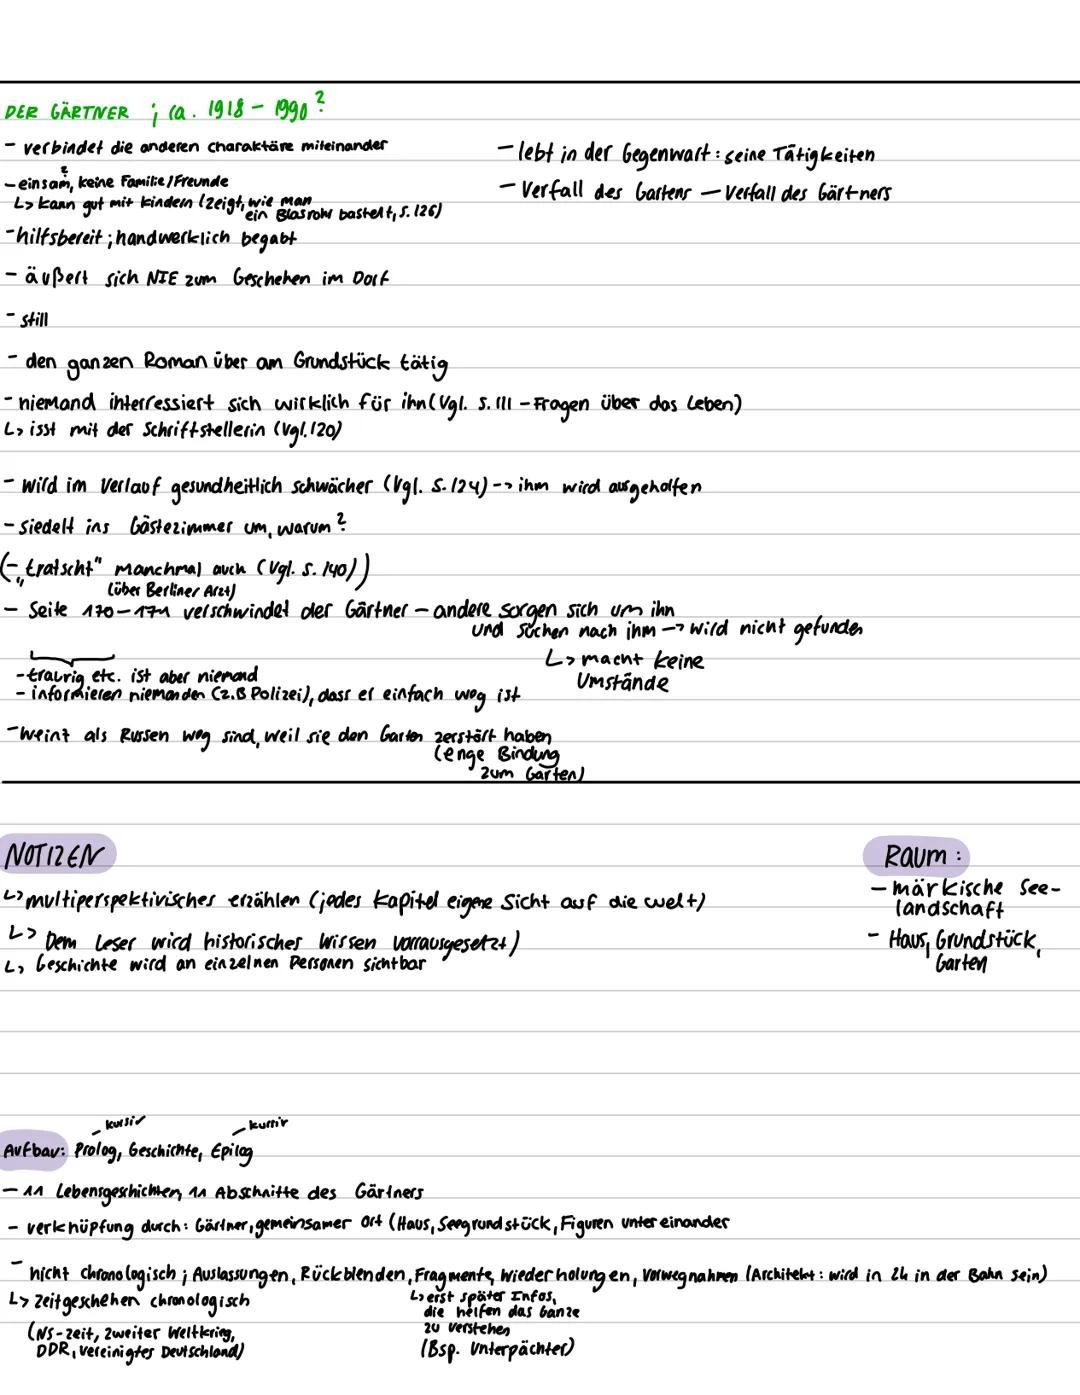 DER GÄRTNER ; ca. 1918 – 1990?
- verbindet die anderen charaktäre miteinander
- einsam?, keine Familie/Freunde
↳ kann gut mit Kindern (zeigt, wie man
ein Blasrohr bastelt, S. 126)
- hilfsbereit ; handwerklich begabt
- äußert sich NIE zum Geschehen im Dorf
- still
- den ganzen Roman über am Grundstück tätig
- niemand interressiert sich wirklich für ihn (Vgl. S. 111 - Fragen über das Leben)
↳ isst mit der Schriftstellerin (Vgl. 120)
- wird im Verlauf gesundheitlich schwächer (Vgl. S. 124) --> ihm wird ausgeholfen
- siedelt ins Gästezimmer um, warum?
(- „tratscht" manchmal auch (Vgl. S. 140))
(über Berliner Arzt)
- Seite 170-171 verschwindet der Gärtner – andere sorgen sich um ihn
und suchen nach ihm -> wird nicht gefunden
↳ macht keine
Umstände
- traurig etc. ist aber niemand
- informieren niemanden (z.B Polizei), dass er einfach weg ist
- weint als Russen weg sind, weil sie den Garten zerstört haben
(enge Bindung
zum Garten)
- lebt in der Gegenwart : seine Tätigkeiten
- Verfall des Gartens – Verfall des Gärtners
NOTIZEN
↳ multiperspektivisches erzählen (jedes Kapitel eigene Sicht auf die Welt)
↳ Dem Leser wird historisches Wissen vorrausgesetzt)
↳ Geschichte wird an einzelnen Personen sichtbar
Raum :
- märkische See-
landschaft
- Haus, Grundstück,
Garten
- kursiv - kursiv
Aufbau: Prolog, Geschichte, Epilog
- 11 Lebensgeschichten, 11 Abschnitte des Gärtners
- verknüpfung durch: Gärtner, gemeinsamer Ort (Haus, Seegrundstück, Figuren untereinander
- nicht chronologisch ; Auslassungen, Rückblenden, Fragmente, Wiederholungen, Vorwegnahmen (Architekt : wird in 2h in der Bahn sein)
↳ Zeitgeschehen chronologisch
(NS-Zeit, zweiter Weltkrieg,
DDR, vereinigtes Deutschland)
↳ erst später Infos,
die helfen das Ganze
zu verstehen
(Bsp. Unterpächter)